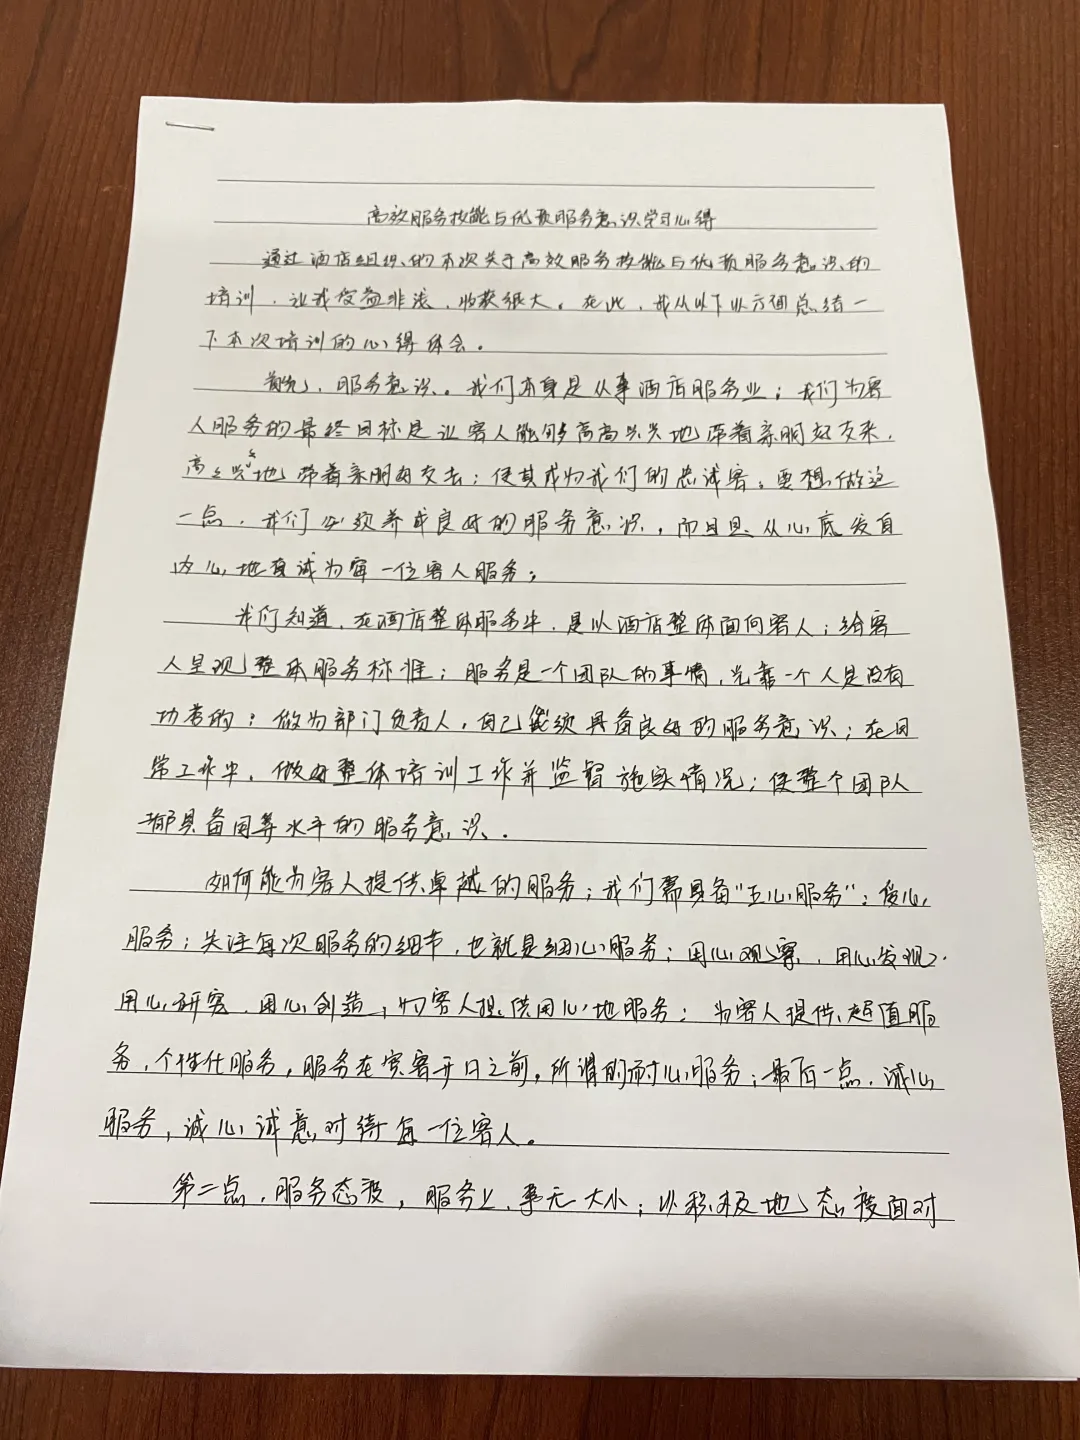 高效服务技能与优质服务意识学习心得
通过酒店组织的本次关于高效服务技能与优质服务意识的
培训，让我受益非浅，收获很大。在此，我从以下几方面总结一
下本次培训的心得体会。
首先，服务意识。我们本身是从事酒店服务业；我们为客
人服务的最终目标是让客人能够高高兴兴地带着亲朋好友来，
高高兴兴地带着亲朋好友去；使其成为我们的忠诚客。要想做这
一点，我们必须养成良好的服务意识，而且是从心底发自
内心地真诚为每一位客人服务；
我们知道，在酒店整体服务中，是以酒店整体面向客人；给客
人呈现整体服务标准；服务是一个团队的事情，光靠一个人是没有
功劳的；做为部门负责人，自己必须具备良好的服务意识；在日
常工作中，做好整体培训工作并监督施实情况；使整个团队
都具备同等水平的服务意识。
如何能为客人提供卓越的服务；我们需具备“五心服务”：爱心
服务；关注每次服务的细节，也就是细心服务；用心观察，用心发现、
用心研究、用心创造，为客人提供用心地服务；为客人提供超值服
务，个性化服务，服务在宾客开口之前，所谓的耐心服务；最后一点，诚心
服务，诚心诚意对待每一位客人。
第二点，服务态度，服务上，事无大小；以积极地态度面对